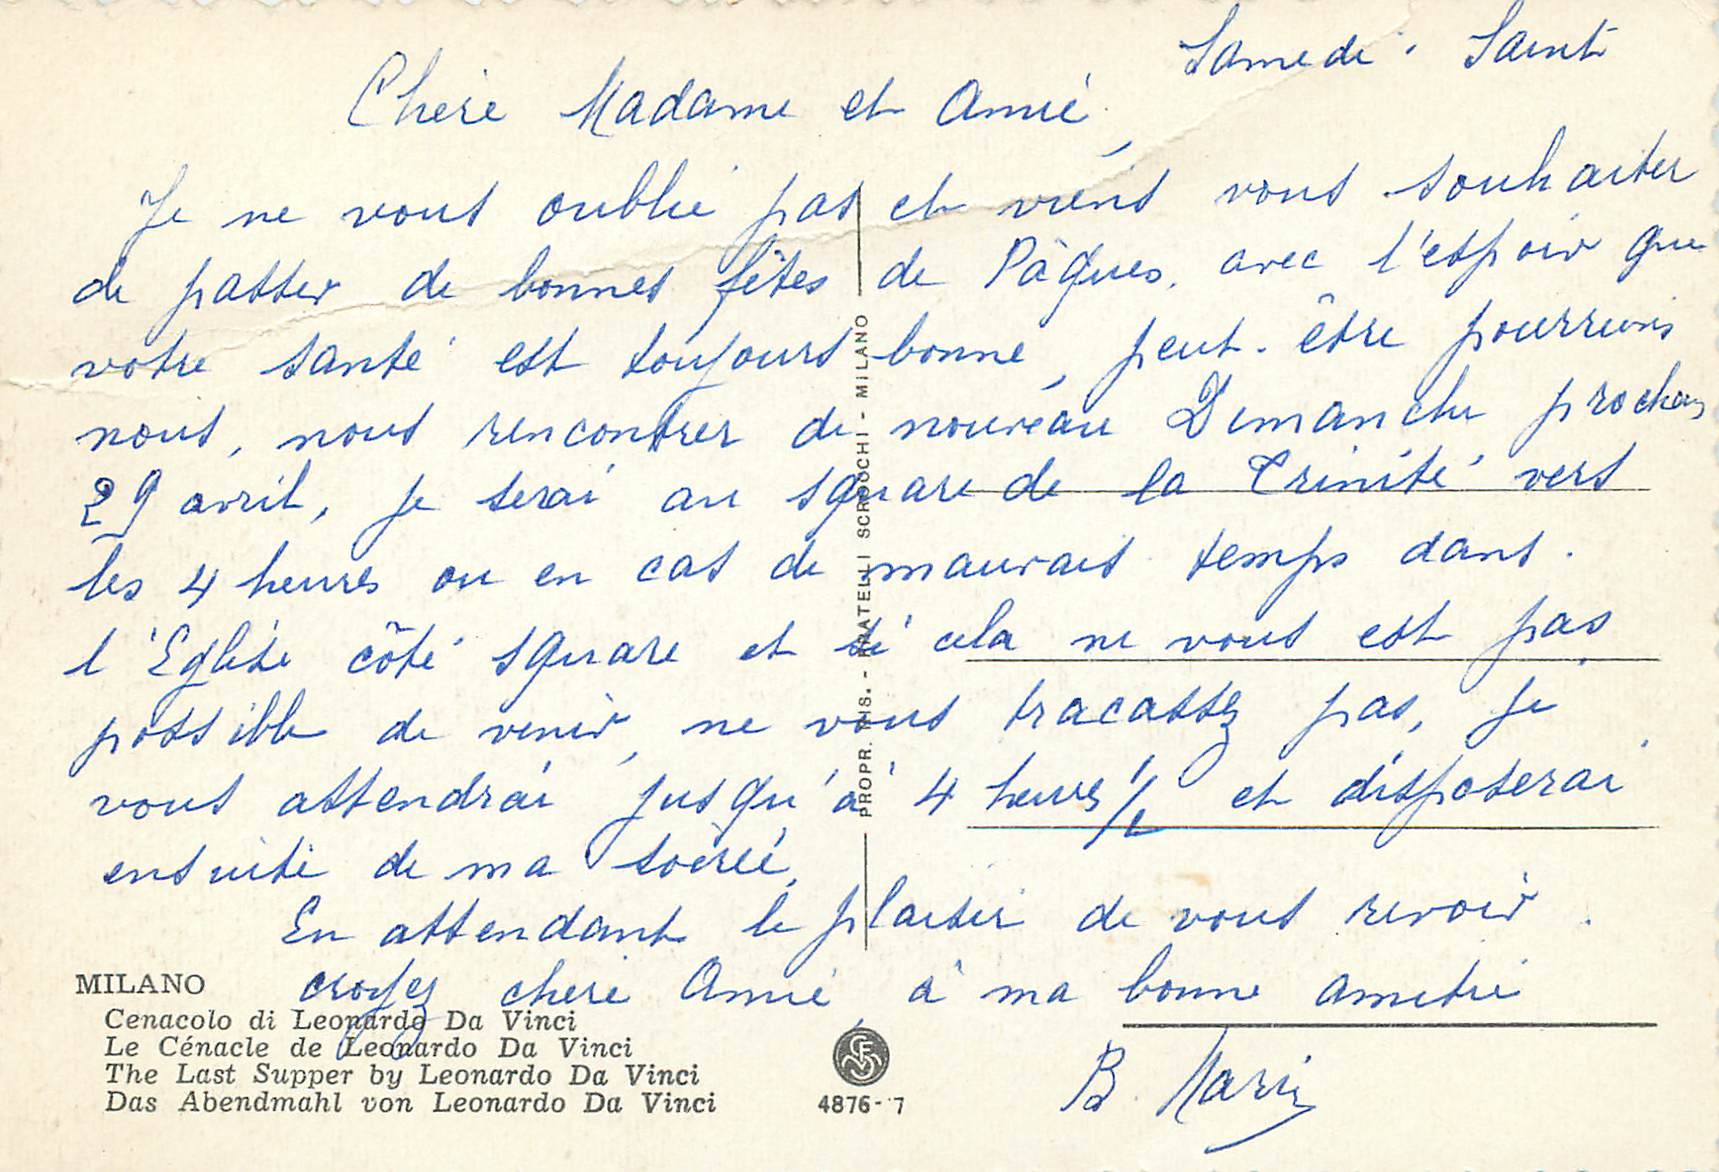 Samedi Saint
Chère Madame et Amie,
Je ne vous oublie pas et viens vous souhaiter
de passer de bonnes fêtes de Pâques, avec l'espoir que
votre santé est toujours bonne, peut-être pourrions
nous, nous rencontrer de nouveau Dimanche prochain
29 avril, je serai au square de la Trinité vers
les 4 heures ou en cas de mauvais temps dans
l'Eglise côté square et si cela ne vous est pas
possible de venir, ne vous tracassez pas, je
vous attendrai jusqu'à 4 heures 1/2 et disposerai
ensuite de ma soirée.
En attendant le plaisir de vous revoir
croyez chère Amie, à ma bonne amitié
B. Marin
MILANO
Cenacolo di Leonardo Da Vinci
Le Cénacle de Leonardo Da Vinci
The Last Supper by Leonardo Da Vinci
Das Abendmahl von Leonardo Da Vinci
4876-7
PROPR. RIS. - FRATELLI SCROCCHI - MILANO